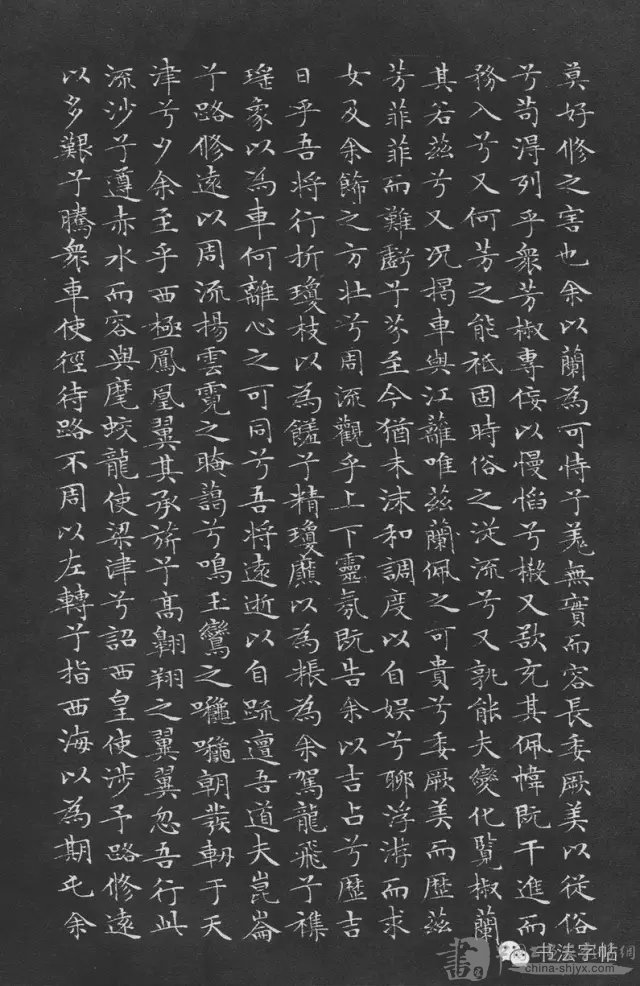 莫好修之害也余以蘭為可恃兮羌無實而容長委厥美以從俗
兮苟淂列乎衆芳椒專佞以慢慆兮樧又欲充其佩幃旣干進而
務入兮又何芳之能祗固時俗之從流兮又孰能夫變化覽椒蘭
其若茲兮又況揭車與江蘺唯茲蘭佩之可貴兮委厥美而歷茲
芳菲菲而難虧兮芬至今猶未沫和調度以自娛兮聊浮游而求
女及余飾之方壯兮周流觀乎上下靈氛旣告余以吉占兮歷吉
日乎吾將行折瓊枝以為饈兮精瓊爢以為粻為余駕龍飛兮襍
瑤象以為車何離心之可同兮吾將遠逝以自疏邅吾道夫崑崙
兮路修遠以周流揚雲霓之晻藹兮鳴玉鸞之啾啾朝發軔于天
津兮夕余至乎西極鳳凰翼其承旂兮高翱翔之翼翼忽吾行此
流沙兮遵赤水而容與麾蛟龍使梁津兮詔西皇使涉予路修遠
以多艱兮騰衆車使徑待路不周以左轉兮指西海以為期屯余
书法字帖
china-shjyx.com